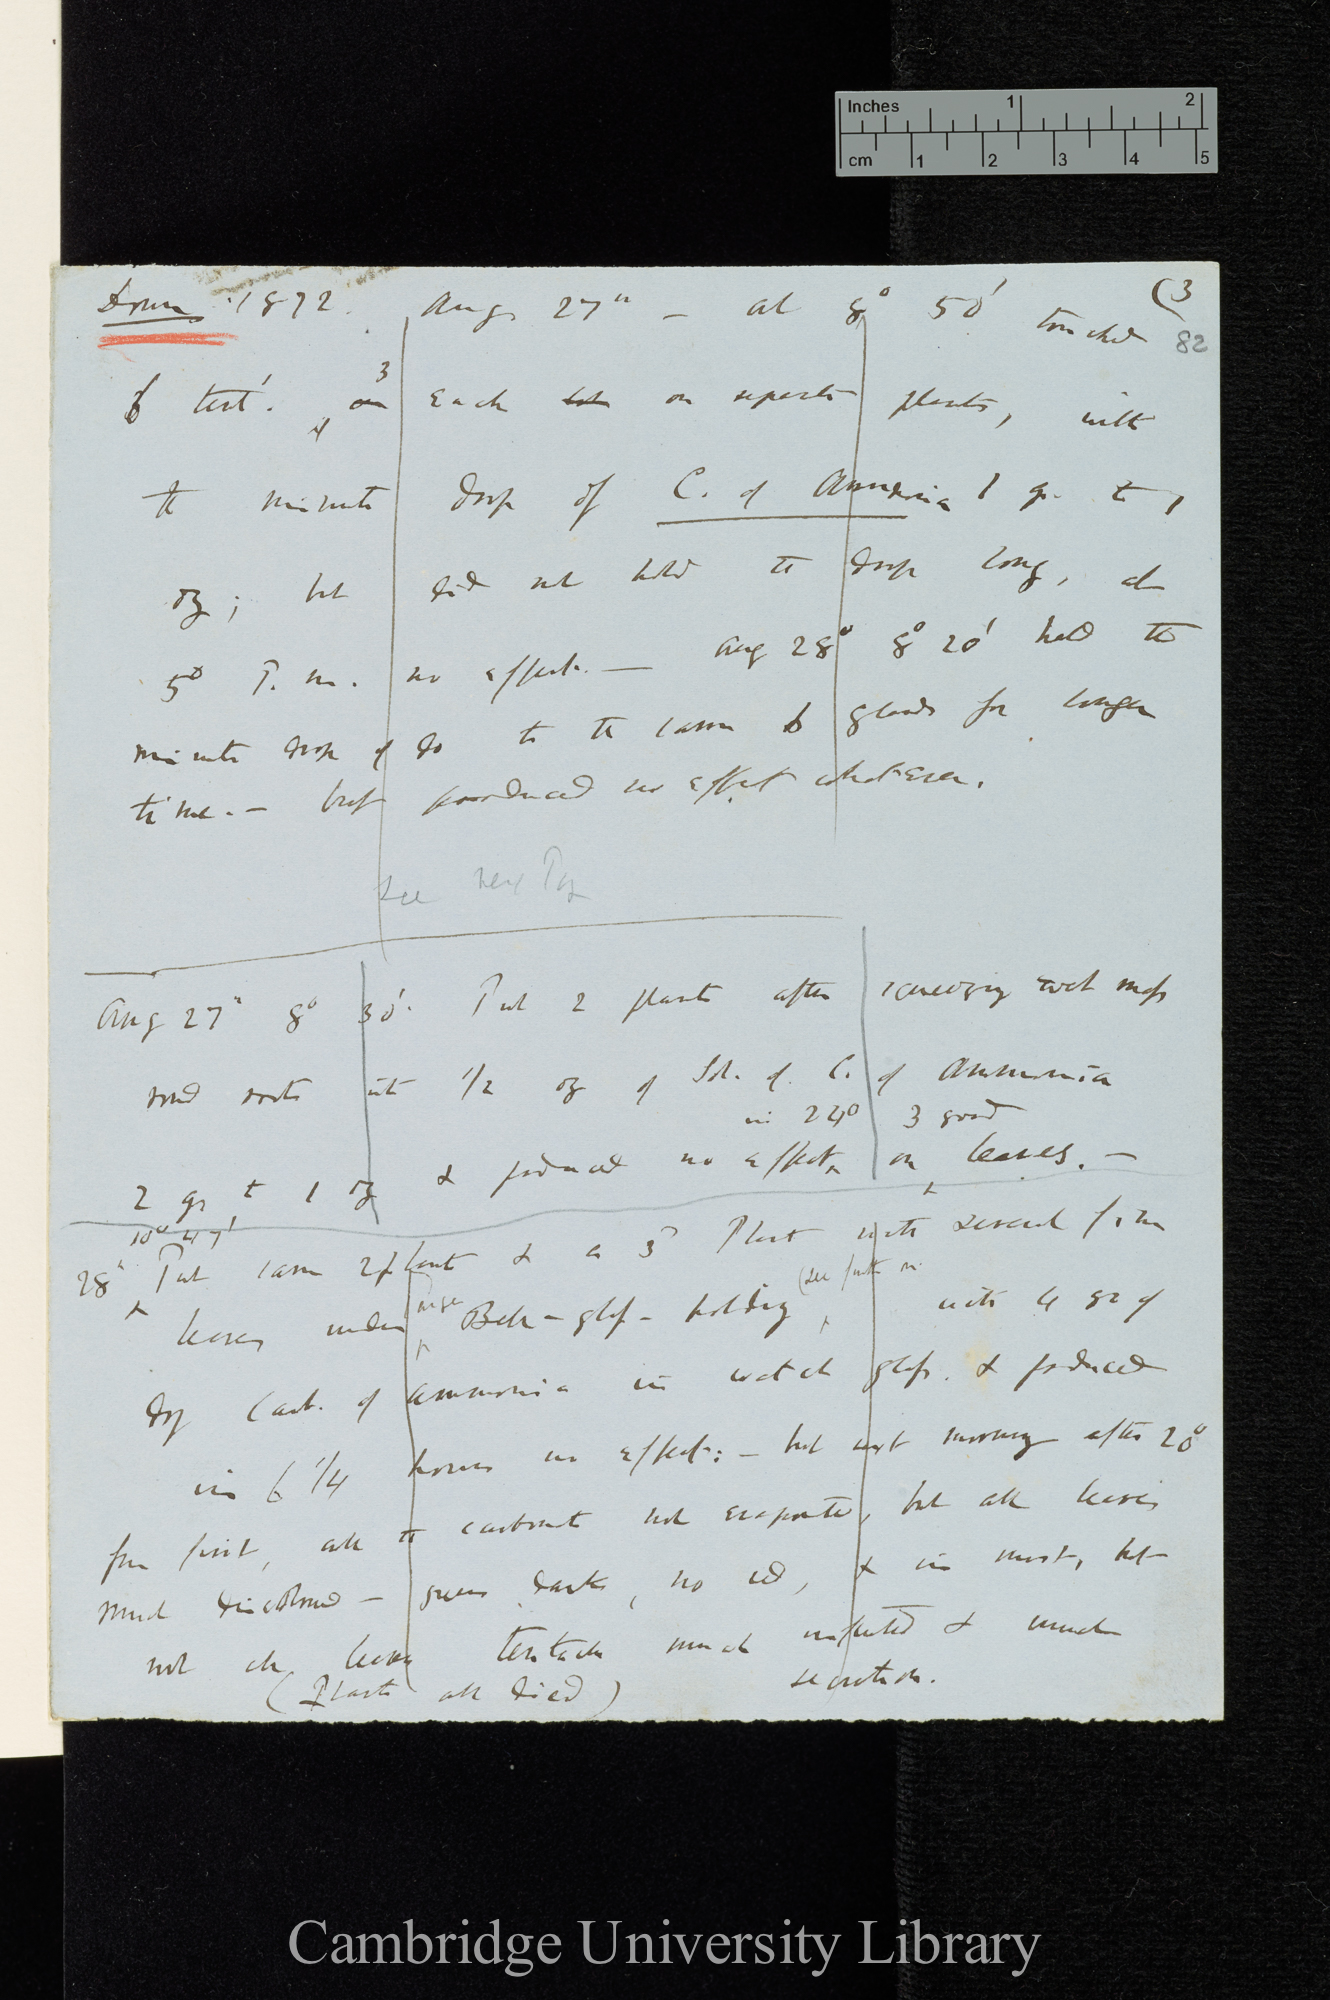 Inches 1 2
cm 1 2 3 4 5
(3
82
1872. Aug 27th — at 8° 50' touched
6 tent'. 3 each on separate plants, with
the minute drop of C. of Ammonia 1 gr. to 1
oz; but did not hold the drop long, at
5° P. m. no effect. — Aug 28th 8° 20' held the
minute drop of do to the same 6 glands for longer
time. — but produced no effect whatever.
See next Pag
Aug 27th 8° 30'. Put 2 plants after squeezing wet moss
round roots into 1/2 oz of Sol. of C. of Ammonia
in 24° 3 good
2 gr to 1 oz & produced no effect on leaves. —
10° 47'
28th Put same 2 plants & a 3d Plant with several fine
(see further on
leaves under large Bell-glass — holding with 4 gr of
dry Carb. of Ammonia in watch glass. & produced
in 6 1/4 hours no effect: — but next morning after 20°
from first, all the carbonate not evaporated, but all leaves
much discoloured — green dark, no red, & in most, but
not all leaves tentacles much inflected & much
(Plants all died) secretion.
Cambridge University Library